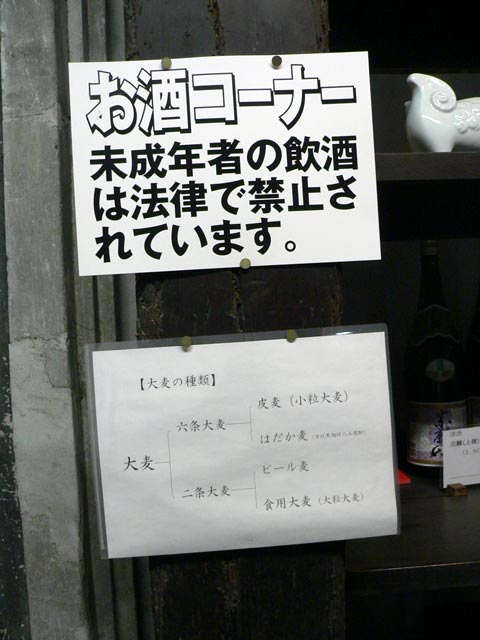 お酒コーナー
未成年者の飲酒
は法律で禁止さ
れています。
【大麦の種類】
大麦
六条大麦
皮麦（小粒大麦）
はだか麦
二条大麦
ビール麦
食用大麦（大粒大麦）